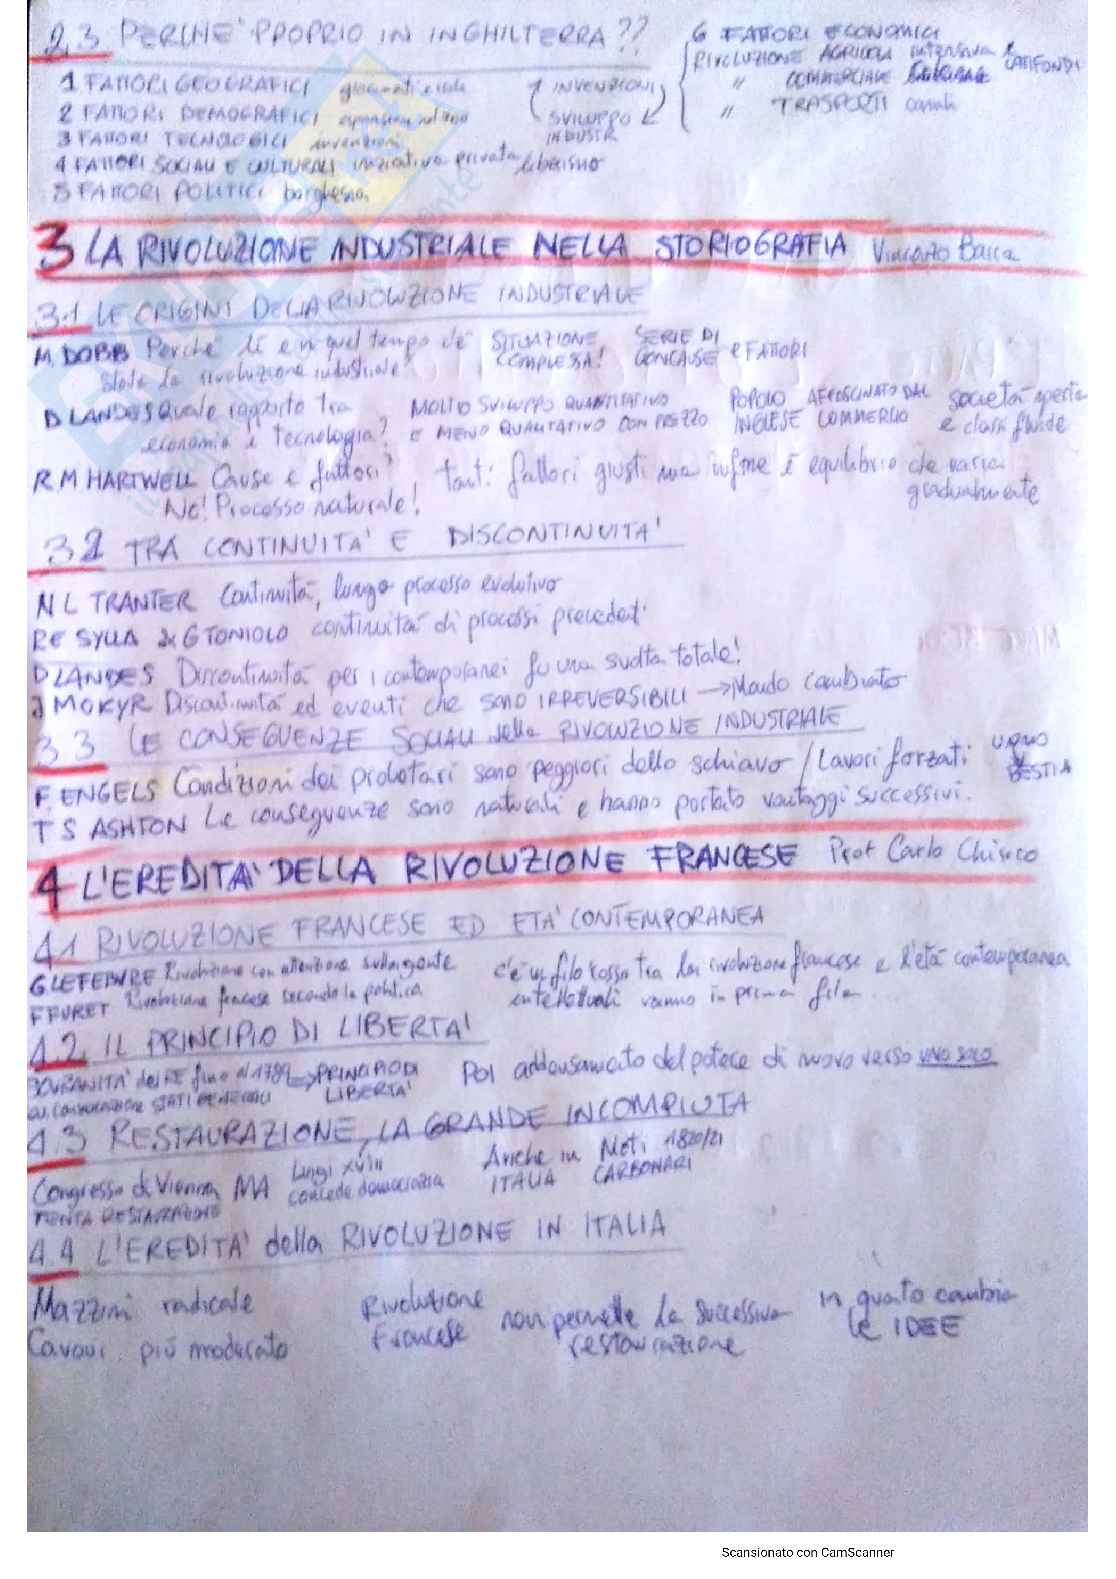 2.3 PERCHE' PROPRIO IN INGHILTERRA??
1 FATTORI GEOGRAFICI giacimenti e isola
2 FATTORI DEMOGRAFICI espansione
3 FATTORI TECNOLOGICI invenzioni
4 FATTORI SOCIALI E CULTURALI iniziativa privata liberismo
5 FATTORI POLITICI borghesia
INVENZIONI
SVILUPPO
INDUSTR
6 FATTORI ECONOMICI
RIVOLUZIONE AGRICOLA intensiva LATIFONDI
" COMMERCIALE
" TRASPORTI canali
3 LA RIVOLUZIONE INDUSTRIALE NELLA STORIOGRAFIA
3.1 LE ORIGINI DELLA RIVOLUZIONE INDUSTRIALE
M. DOBB Perché lì e in quel tempo c'è SITUAZIONE SERIE DI
stata la rivoluzione industriale? COMPLESSA! CONCAUSE e FATTORI
D LANDES Quale rapporto tra MOLTO SVILUPPO QUANTITATIVO POPOLO AFFASCINATO DAL società aperta
economia e tecnologia? E MENO QUALITATIVO CON PREZZO INGLESE COMMERCIO e classi fluide
R M HARTWELL Cause e fattori? tanti fattori giusti ma infine è equilibrio che varia
No! Processo naturale! gradualmente
3.2 TRA CONTINUITA' E DISCONTINUITA'
N L TRANTER Continuità, lungo processo evolutivo
RE SYLLA & G TONIOLO continuità di processi precedenti
D LANDES Discontinuità per i contemporanei fu una svolta totale!
J MOKYR Discontinuità ed eventi che sono IRREVERSIBILI → Mondo cambiato
3.3 LE CONSEGUENZE SOCIALI della RIVOLUZIONE INDUSTRIALE
F. ENGELS Condizioni dei proletari sono peggiori dello schiavo / Lavori forzati UOMO
BESTIA
T S ASHTON Le conseguenze sono naturali e hanno portato vantaggi successivi.
4 L'EREDITA' DELLA RIVOLUZIONE FRANCESE Prof Carlo
4.1 RIVOLUZIONE FRANCESE ED ETA' CONTEMPORANEA
G LEFEBVRE Rivoluzione con attenzione sulla gente c'è un filo rosso tra la rivoluzione francese e l'età contemporanea
F FURET Rivoluzione francese secondo la politica intellettuali vanno in prima fila
4.2 IL PRINCIPIO DI LIBERTA'
SOVRANITA' del RE fino al 1789 → PRINCIPIO DI Poi addensamento del potere di nuovo verso UNO SOLO
CONVOCAZIONE STATI GENERALI LIBERTA'
4.3 RESTAURAZIONE, LA GRANDE INCOMPIUTA
Congresso di Vienna MA Luigi XVIII Anche in Moti 1820/21
TENTA RESTAURAZIONE concede democrazia ITALIA CARBONARI
4.4 L'EREDITA' della RIVOLUZIONE IN ITALIA
Mazzini radicale Rivoluzione non permette la successiva in quanto cambia
Cavour più moderato Francese restaurazione le IDEE
Scansionato con CamScanner